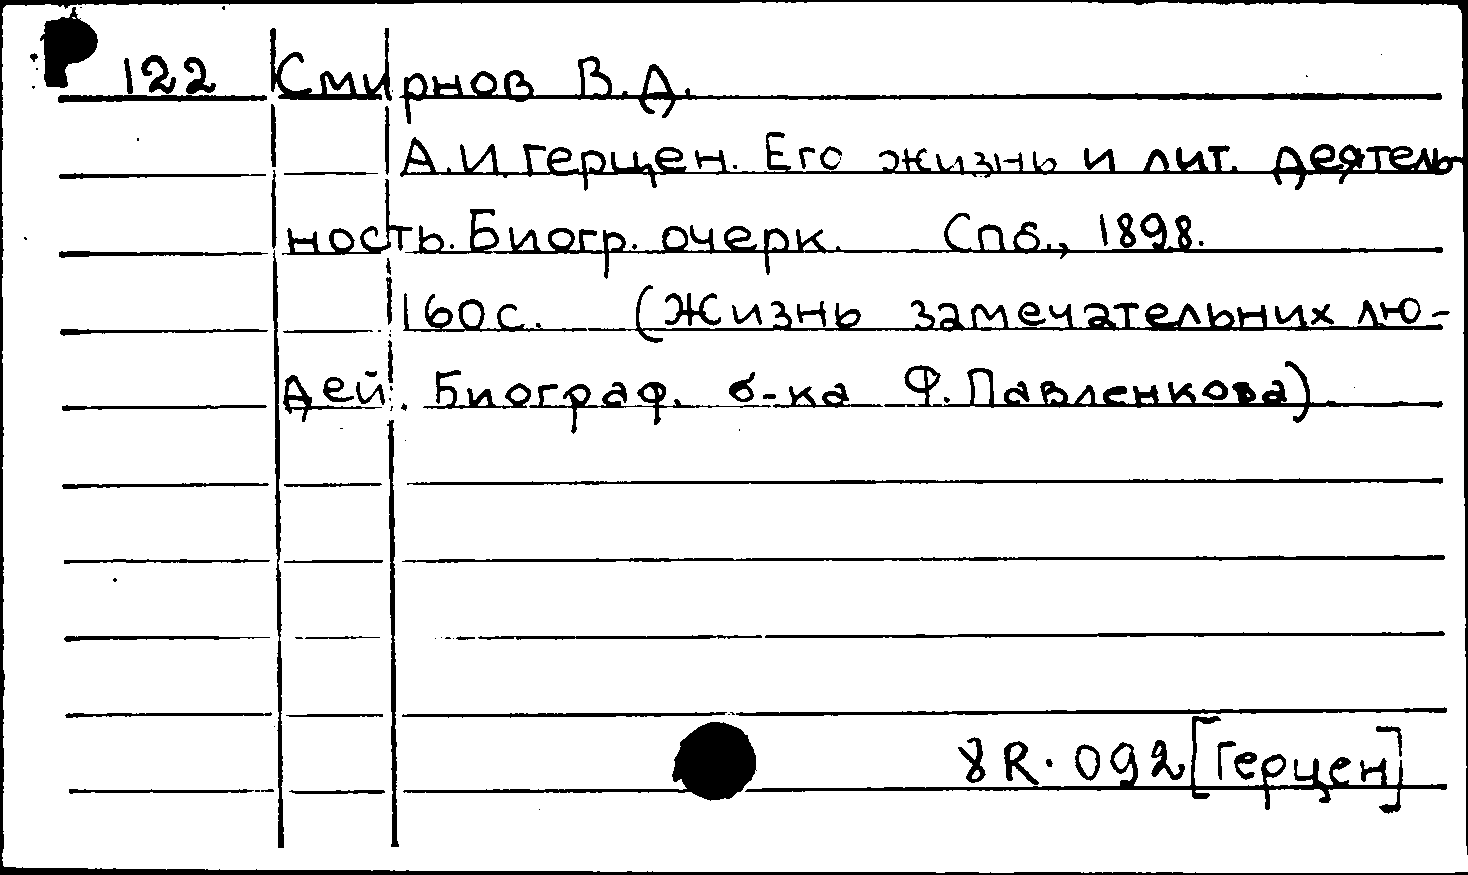 Р 122 Смирнов В.А.
А.И. Герцен. Его жизнь и лит. деятель
ность. Биогр. очерк. Спб., 1898.
160 с. (Жизнь замечательних лю-
дей. Биограф. б-ка Ф. Павленкова).
8R.092[Герцен]